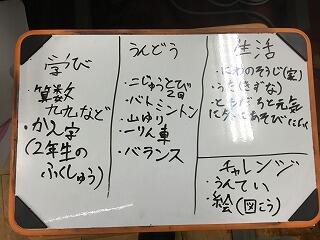 学び
・算数
九九など
・かん字
(2年生の
ふくしゅう)
うんどう
・二じゅうとび
2回
・バトミントン
・山ゆり
・一りん車
・バランス
生活
・にわのそうじ(家)
・うた(きずな)
・ともだちと元気
チャレンジ
・うんてい
・絵(図こう)